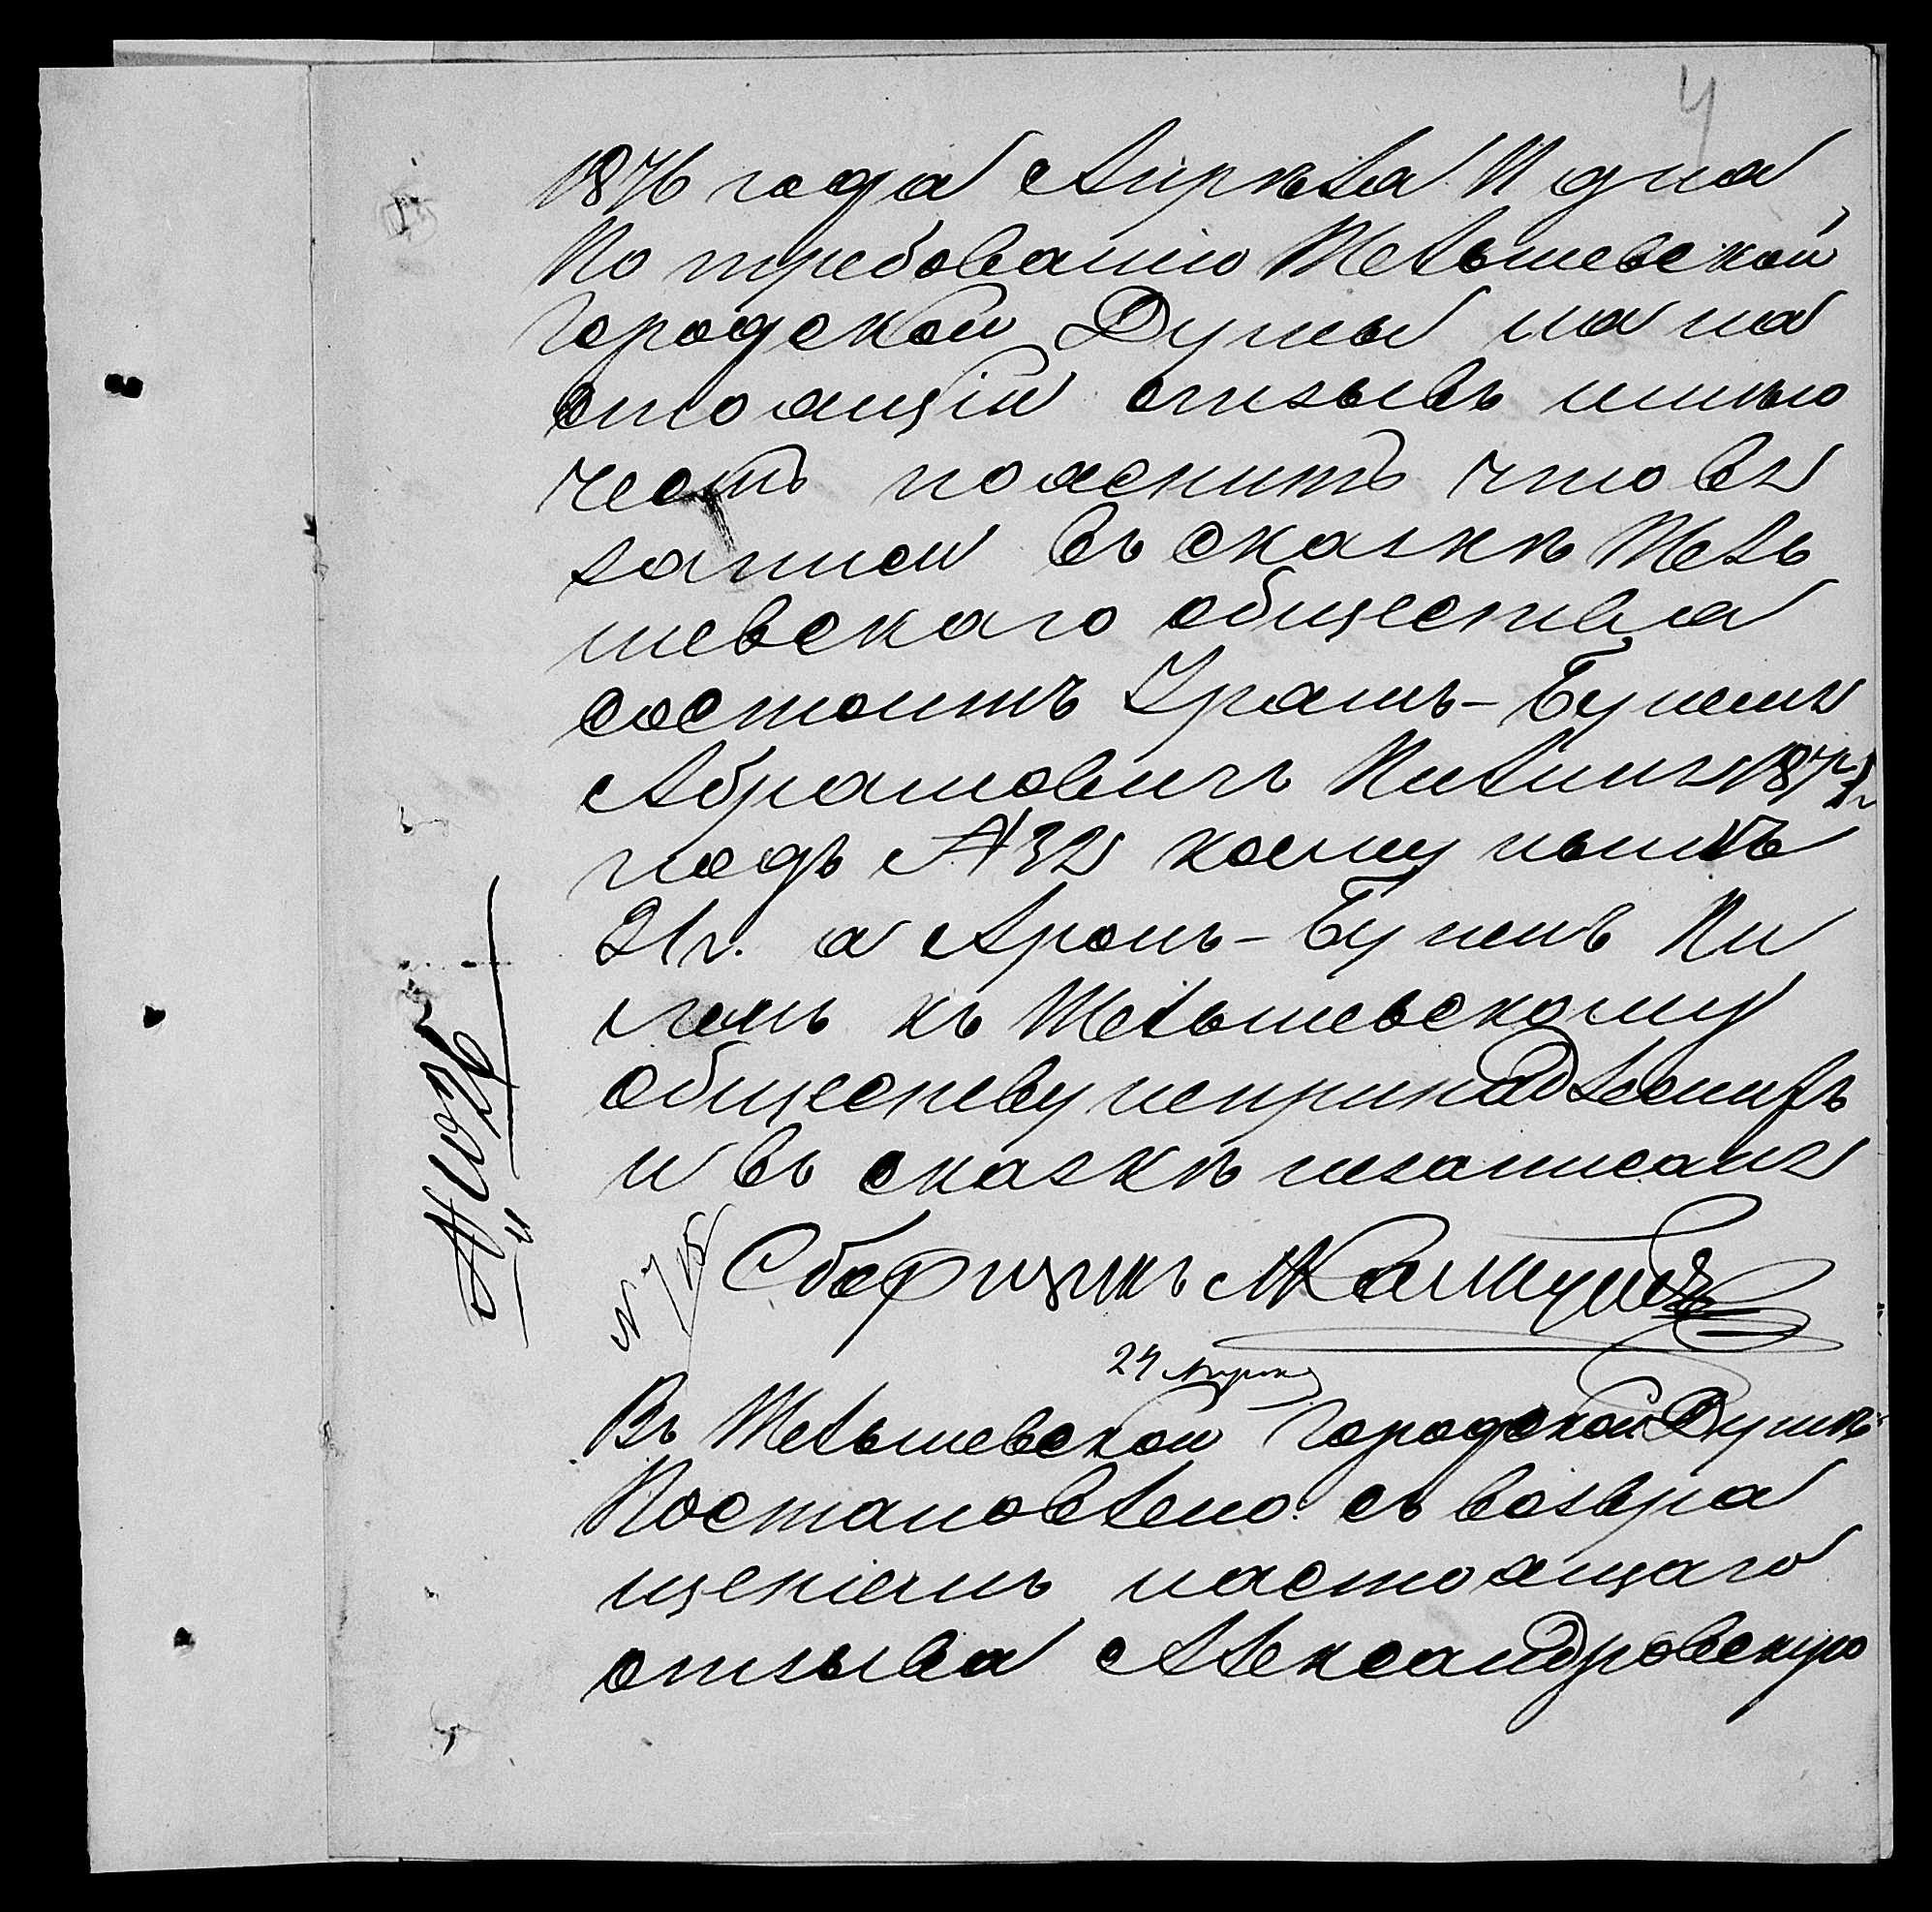 4
1876 года Апрѣля 11 дня
По требованію Тельшевской
Городской Думы на на
стоящій отзывъ имѣю
честь пояснить что въ
записи въ сказкѣ Тель
шевскаго общества
состоитъ Урашъ-Бунемъ
Абрамовичъ
подъ № 32 коему нынѣ
21 г. а Аронъ-Бунемъ
къ Тельшевскому
обществу непринадлежитъ
и въ сказкѣ незаписанъ
Сборщикъ
№ 715
24 Апрѣля
Въ Тельшевской Городской Думѣ
Постановлено: съ возвра
щеніемъ настоящаго
отзыва Александровскую